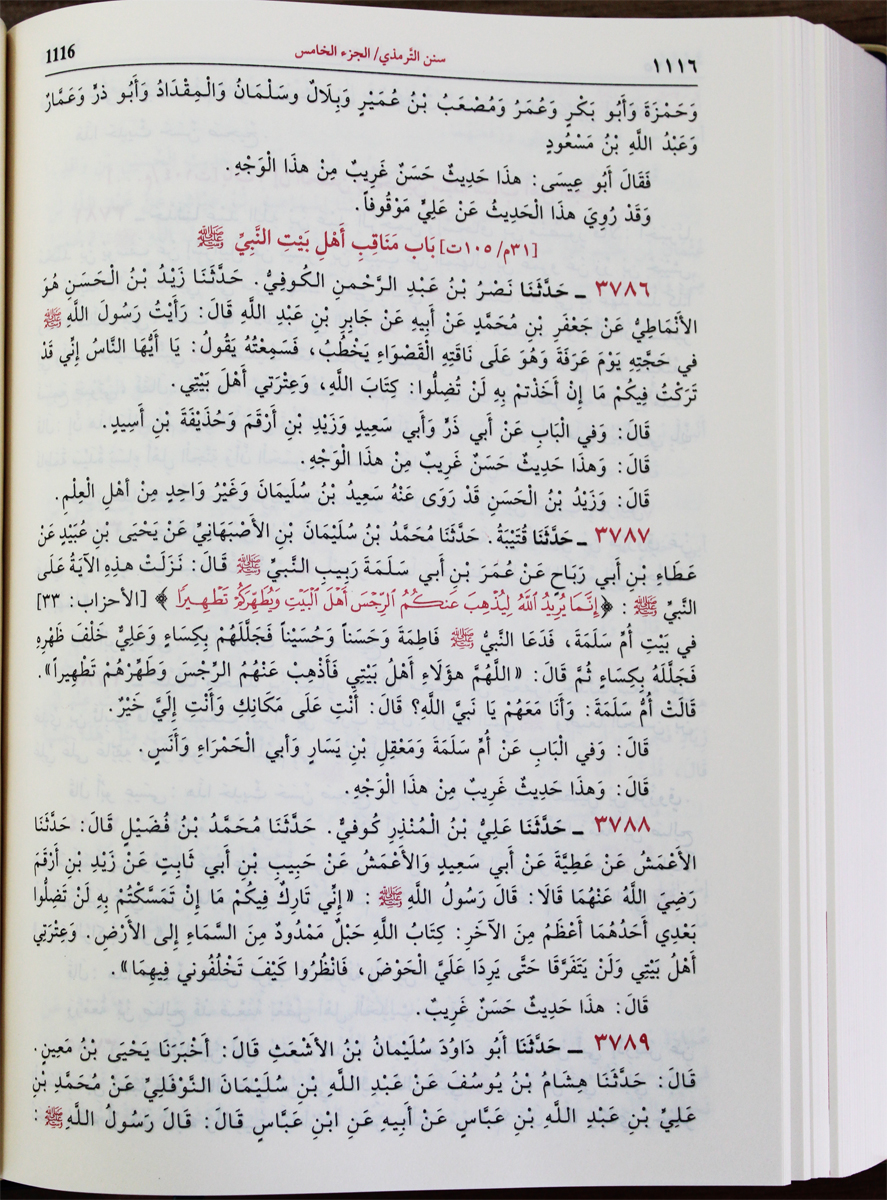 1116 سنن التّرمذي/ الجزء الخامس ١١١٦
وَحَمْزَةَ وَأَبُو بَكْرٍ وَعُمَرُ وَمُصْعَبُ بْنُ عُمَيْرٍ وَبِلَالٌ وسَلْمَانُ وَالْمِقْدَادُ وَأَبُو ذرٍّ وَعَمَّارُ
وَعَبْدُ اللَّهِ بْنُ مَسْعُودٍ
فَقَالَ أَبُو عِيسَى: هذَا حَدِيثٌ حَسَنٌ غَرِيبٌ مِنْ هذَا الْوَجْهِ.
وَقَدْ رُوِيَ هذَا الْحَدِيثُ عَنْ عَلِيٍّ مَوْقُوفاً.
[٣١م/ ١٠٥ت] بَاب مَنَاقِبِ أَهْلِ بَيْتِ النَّبِيِّ ﷺ
٣٧٨٦ ـ حَدَّثَنَا نَصْرُ بْنُ عَبْدِ الرَّحْمنِ الكُوفِيُّ. حَدَّثَنَا زَيْدُ بْنُ الْحَسَنِ هُوَ
الأَنْمَاطِيُّ عَنْ جَعْفَرِ بْنِ مُحَمَّدٍ عَنْ أَبِيهِ عَنْ جَابِرِ بْنِ عَبْدِ اللَّهِ قَالَ: رَأَيْتُ رَسُولَ اللَّهِ ﷺ
في حَجَّتِهِ يَوْمَ عَرَفَةَ وَهُوَ عَلَى نَاقَتِهِ الْقَصْوَاءِ يَخْطُبُ، فَسَمِعْتُهُ يَقُولُ: يَا أَيُّهَا النَّاسُ إِنِّي قَدْ
تَرَكْتُ فِيكُمْ مَا إِنْ أَخَذْتمْ بِهِ لَنْ تُضِلُّوا: كِتَابَ اللَّهِ، وَعِتْرَتي أَهْلَ بَيْتِي.
قَالَ: وَفي الْبَابِ عَنْ أَبي ذَرٍّ وَأَبي سَعِيدٍ وَزَيْدِ بْنِ أَرْقَمَ وَحُذَيْفَةَ بْنِ أَسِيدٍ.
قَالَ: وَهذَا حَدِيثٌ حَسَنٌ غَرِيبٌ مِنْ هذَا الْوَجْهِ.
قَالَ: وَزَيْدُ بْنُ الْحَسَنِ قَدْ رَوَى عَنْهُ سَعِيدُ بْنُ سُلَيمَانَ وَغَيْرُ وَاحِدٍ مِنْ أهْلِ الْعِلْمِ.
٣٧٨٧ ـ حَدَّثَنَا قُتَيْبَةُ. حَدَّثَنَا مُحَمَّدُ بْنُ سُلَيْمَانَ بْنِ الأَصْبَهَانِيِّ عَنْ يَحْيَى بْنِ عُبَيْدٍ عَنْ
عَطَاءِ بْنِ أَبي رَبَاحٍ عَنْ عُمَرَ بْنِ أَبي سَلَمَةَ رَبِيبِ النَّبيِّ ﷺ قَالَ: نَزَلَتْ هذِهِ الآيَةُ عَلَى
النَّبيِّ ﷺ : ﴿إِنَّمَا يُرِيدُ ٱللَّهُ لِيُذْهِبَ عَنكُمُ ٱلرِّجْسَ أَهْلَ ٱلْبَيْتِ وَيُطَهِّرَكُمْ تَطْهِيرًا﴾ [الأحزاب: ٣٣]
في بَيْتِ أُمِّ سَلَمَةَ، فَدَعَا النَّبيُّ ﷺ فَاطِمَةَ وَحَسَناً وَحُسَيْناً فَجَلَّلَهُمْ بِكِسَاءٍ وَعَلِيٌّ خَلْفَ ظَهْرِهِ
فَجَلَّلَهُ بِكِسَاءٍ ثُمَّ قَالَ: «اللَّهُمَّ هؤُلَاءِ أَهْلُ بَيْتِي فَأَذْهِبْ عَنْهُمُ الرِّجْسَ وَطَهِّرْهُمْ تَطْهِيراً».
قَالَتْ أُمُّ سَلَمَةَ: وَأَنَا مَعَهُمْ يَا نَبيَّ اللَّهِ؟ قَالَ: أَنْتِ عَلَى مَكَانَكِ وَأَنْتِ إِلَيَّ خَيْرٌ.
قَالَ: وَفي الْبَابِ عَنْ أُمِّ سَلَمَةَ وَمَعْقِلِ بْنِ يَسَارٍ وَأبي الْحَمْرَاءِ وَأَنَسٍ.
قَالَ: وَهذَا حَدِيثٌ غَرِيبٌ مِنْ هذَا الْوَجْهِ.
٣٧٨٨ ـ حَدَّثَنَا عَلِيُّ بْنُ الْمُنْذِرِ كُوفيٌّ. حَدَّثَنَا مُحَمَّدُ بْنُ فُضَيْلٍ قَالَ: حَدَّثَنَا
الأَعْمَشُ عَنْ عَطِيَّةَ عَنْ أَبي سَعِيدٍ وَالأَعْمَشُ عَنْ حَبِيبِ بْنِ أَبي ثَابِتٍ عَنْ زَيْدِ بْنِ أَرْقَمَ
رَضِيَ اللَّهُ عَنْهُمَا قَالَا: قَالَ رَسُولُ اللَّهِ ﷺ : «إِنِّي تَارِكٌ فِيكُمْ مَا إِنْ تَمَسَّكْتُمْ بِهِ لَنْ تَضِلُّوا
بَعْدِي أَحَدُهُمَا أَعْظَمُ مِنَ الآخَرِ: كِتَابُ اللَّهِ حَبْلٌ مَمْدُودٌ مِنَ السَّمَاءِ إِلى الأَرْضِ. وَعِتْرَتِي
أَهْلُ بَيْتِي وَلَنْ يَتَفَرَّقَا حَتَّى يَرِدَا عَلَيَّ الْحَوْضَ، فَانْظُرُوا كَيْفَ تَخْلُفُوني فِيهِمَا».
قَالَ: هذَا حَدِيثٌ حَسَنٌ غَرِيبٌ.
٣٧٨٩ ـ حَدَّثَنَا أَبُو دَاوُدَ سُلَيْمَانُ بْنُ الأَشْعَثِ قَالَ: أَخْبَرَنَا يَحْيَى بْنُ مَعِينٍ.
قَالَ: حَدَّثَنَا هِشَامُ بْنُ يُوسُفَ عَنْ عَبْدِ اللَّهِ بْنِ سُلَيْمَانَ النَّوْفَلِيِّ عَنْ مُحَمَّدِ بْنِ
عَلِيِّ بْنِ عَبْدِ اللَّهِ بْنِ عَبَّاسٍ عَنْ أَبِيهِ عَنِ ابْنِ عَبَّاسٍ قَالَ: قَالَ رَسُولُ اللَّهِ ﷺ :